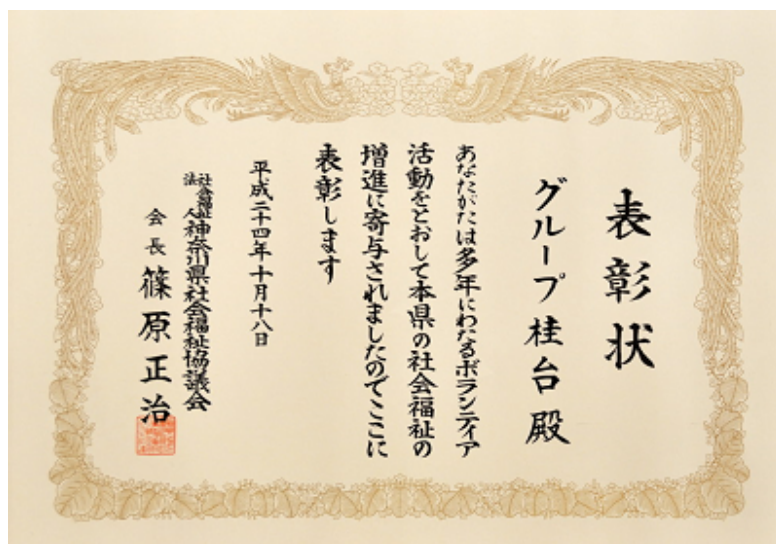 表彰状
グループ桂台殿
あなたがたは多年にわたるボランティア
活動をとおして本県の社会福祉の
増進に寄与されましたのでここに
表彰します
平成二十四年十月十八日
社会福祉法人神奈川県社会福祉協議会
会長 篠原正治